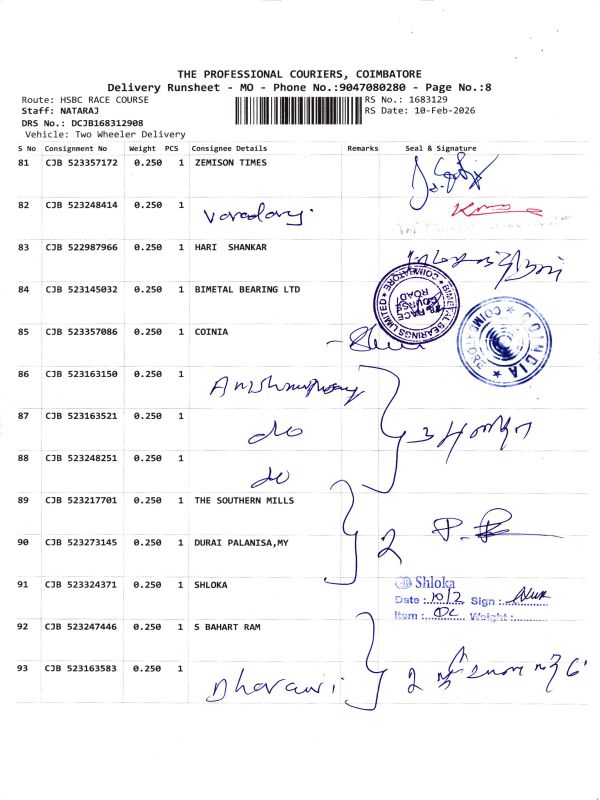 THE PROFESSIONAL COURIERS, COIMBATORE
Delivery Runsheet - MO - Phone No.:9047080280 - Page No.:8
Route: HSBC RACE COURSE RS No.: 1683129
Staff: NATARAJ RS Date: 10-Feb-2026
DRS No.: DCJB168312908
Vehicle: Two Wheeler Delivery
S No Consignment No Weight PCS Consignee Details Remarks Seal & Signature
81 CJB 523357172 0.250 1 ZEMISON TIMES
82 CJB 523248414 0.250 1
83 CJB 522987966 0.250 1 HARI SHANKAR
84 CJB 523145032 0.250 1 BIMETAL BEARING LTD
BIMETAL BEARINGS LIMITED COIMBATORE
RACE COURSE ROAD
85 CJB 523357086 0.250 1 COINIA
COINDIA COIMBATORE
86 CJB 523163150 0.250 1
87 CJB 523163521 0.250 1 do
3
88 CJB 523248251 0.250 1 do
89 CJB 523217701 0.250 1 THE SOUTHERN MILLS
90 CJB 523273145 0.250 1 DURAI PALANISA,MY 2
91 CJB 523324371 0.250 1 SHLOKA
Shloka
Date : 10/2 Sign :
Item : DC Weight :
92 CJB 523247446 0.250 1 S BAHART RAM
93 CJB 523163583 0.250 1 Dharani 2